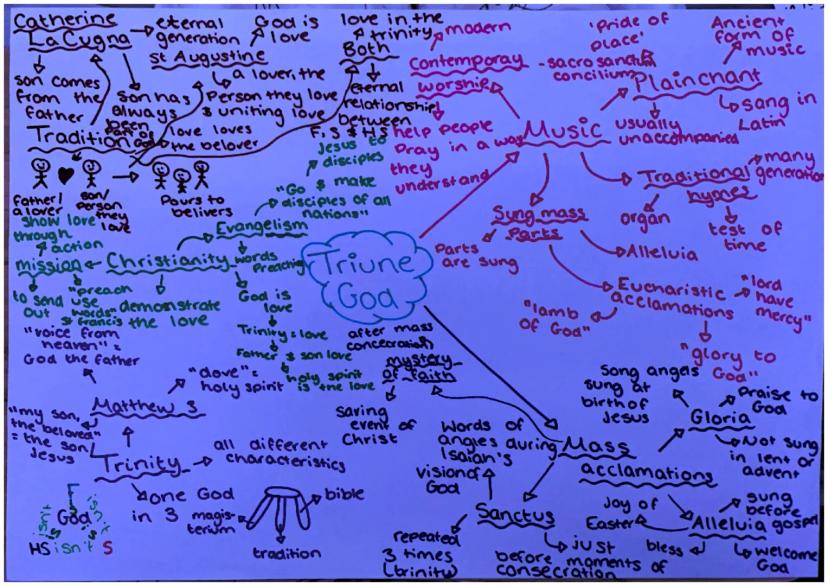 Catherine
LaCugna
eternal
generation
son comes
from the
father
son has
always
been
part of
God
St Augustine
God is
love
a lover, the
Person they love
& uniting love
love loves
the belover
love in the
trinity
Both
eternal
relationship
between
F, S & HS
Tradition
father/
a lover
son/
person
they
love
Pours to
belivers
Triune
God
Christianity
Evangelism
Jesus to
disciples
"Go & make
disciples of all
nations"
words
Preaching
God is
love
Trinity = love
Father & son love
holy spirit
is the love
demonstrate
the love
"preach
use
words"
St francis
mission
show love
through
action
to send
out
Music
Contemporay
worship
modern
help people
pray in a way
they
understand
Plainchant
'Pride of
place'
- sacrosanctum
concilium
Ancient
form of
music
sang in
Latin
usually
unaccompanied
Traditional
hymes
many
generation
organ
test of
time
Sung mass
Parts
Parts
are sung
Alleluia
Eucharistic
acclamations
"lord
have
mercy"
"lamb
of God"
"glory to
God"
Mass
acclamations
mystery
of faith
after mass
concecration
saving
event of
Christ
Gloria
Song angels
sung at
birth of
Jesus
Praise to
God
Not sung
in lent or
advent
Alleluia
sung
before
gospel
Joy of
Easter
bless
welcome
God
Sanctus
Words of
angles during
Isaiah's
vision of
God
repeated
3 times
(trinity)
just
before moments of
consecration
Trinity
Matthew 3
"voice from
heaven" =
God the father
"dove" =
holy spirit
"my son,
the beloved"
= the son/
Jesus
all different
characteristics
one God
in 3
magis-
terium
bible
tradition
F
isn't
isn't
God
is
is
HS isn't S